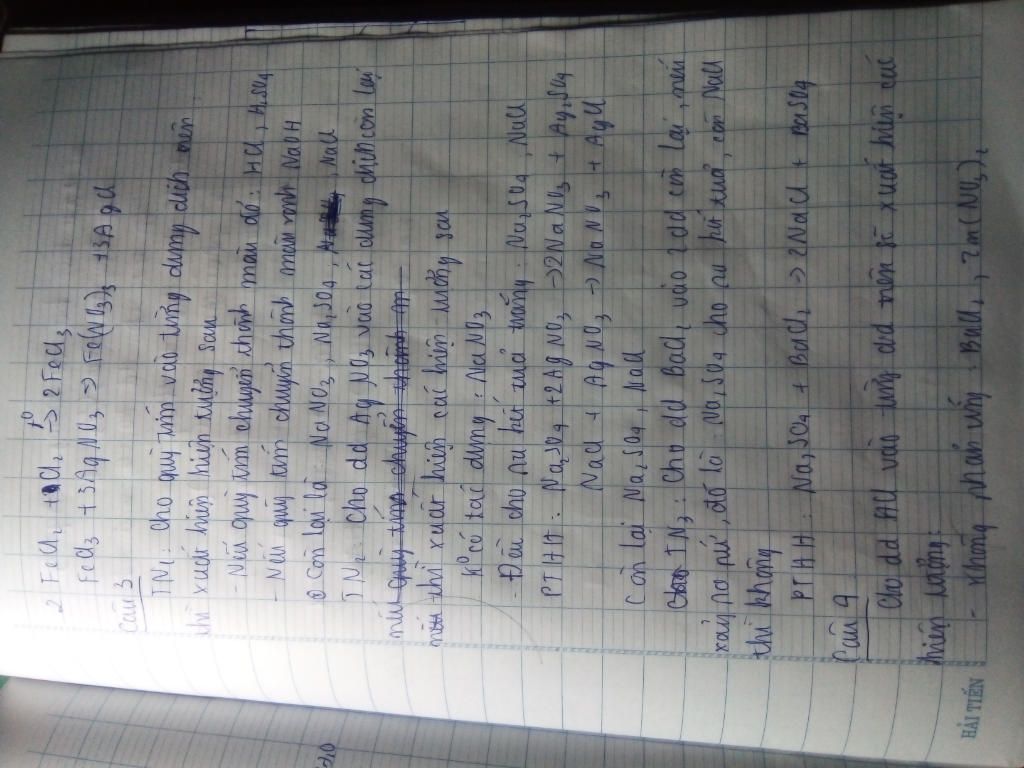 2 FeCl2 + Cl2 t° -> 2FeCl3
FeCl3 + 3AgNO3 -> Fe(NO3)3 + 3AgCl
Câu 3
TN1: Cho quỳ tím vào từng dung dịch nếu
thì xuất hiện hiện tượng sau
- Nếu quỳ tím chuyển thành màu đỏ: HCl, H2SO4
- Nếu quỳ tím chuyển thành màu xanh NaOH
Còn lại là: NaNO3, Na2SO4, NaCl
TN2: Cho dd AgNO3 vào các dung dịch còn lại
nếu quỳ tím chuyển thành m
thì xuất hiện cái hiện tượng sau
K° có tác dụng: NaNO3
- Đều cho ra kết tuả trắng: Na2SO4, NaCl
PTHH: Na2SO4 + 2AgNO3 -> 2NaNO3 + Ag2SO4
NaCl + AgNO3 -> NaNO3 + AgCl
Còn lại Na2SO4, NaCl
TN3: Cho dd BaCl2 vào 2 dd còn lại, nếu
xảy ra pứ, đó là Na2SO4 cho ra kết tuả, còn NaCl
thì không
PTHH: Na2SO4 + BaCl2 -> 2NaCl + BaSO4
Câu 4
Cho dd HCl vào từng dd nếu sẽ xuất hiện cái
hiện tượng:
- không phản ứng: BaCl2, Zn(NO3)2
HẢI TIẾN